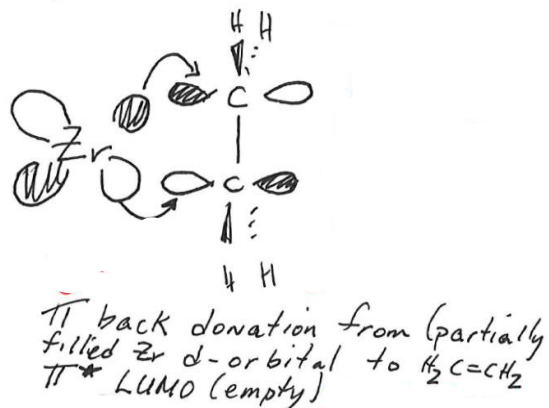 H H
C
Zr
C
H H
π back donation from (partially
filled Zr d-orbital to H₂C=CH₂
π* LUMO (empty)